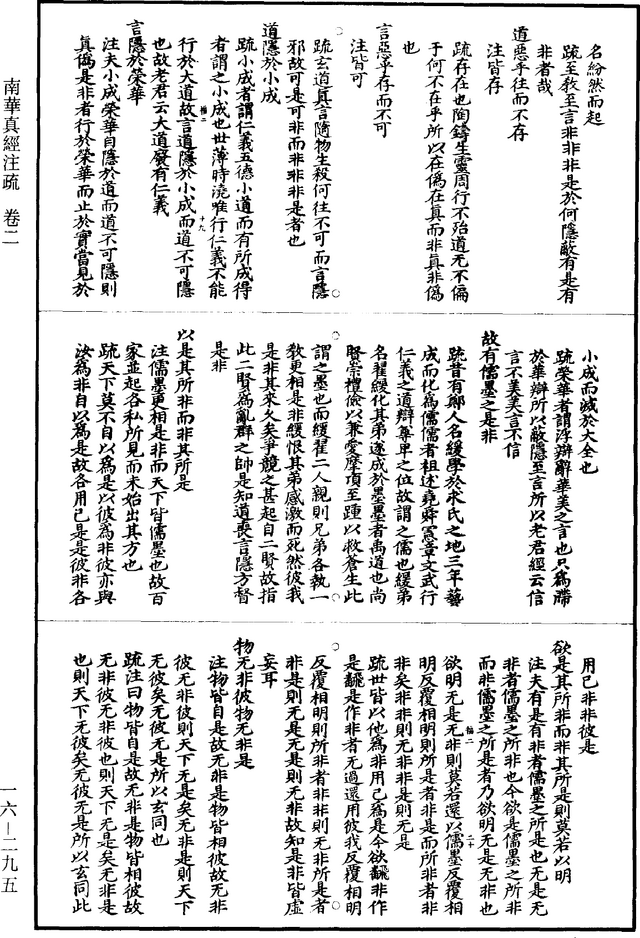 南華真經注疏　卷二
名紛然而起
疏至教至言非非非是於何隱蔽有是有
非者哉
道惡乎往而不存
注皆存
疏存在也陶鑄生靈周行不殆道无不徧
于何不在乎所以在偽在真而非真非偽
也
言惡乎存而不可
注皆可
疏玄道真言隨物生殺何往不可而言隱
邪故可是可非而非非非是者也
道隱於小成
疏小成者謂仁義五德小道而有所成得
者謂之小成也世薄時澆唯行仁義不能
行於大道故言道隱於小成而道不可隱
也故老君云大道廢有仁義
言隱於榮華
注夫小成榮華自隱於道而道不可隱則
真偽是非者行於榮華而止於實當見於
小成而滅於大全也
疏榮華者謂浮辯辭華美之言也只為滯
於華辯所以蔽隱至言所以老君經云信
言不美美言不信
故有儒墨之是非
疏昔有鄭人名緩學於求氏之地三年藝
成而化為儒儒者祖述堯舜憲章文武行
仁義之道辯尊卑之位故謂之儒也緩弟
名翟緩化其弟遂成於墨墨者禹道也尚
賢崇禮儉以兼愛摩頂至踵以救蒼生此
謂之墨也而緩翟二人親則兄弟各執一
教更相是非緩恨其弟感激而死然彼我
是非其來久矣爭競之甚起自二賢故指
此二賢為亂群之帥是知道喪言隱方督
是非
以是其所非而非其所是
注儒墨更相是非而天下皆儒墨也故百
家並起各私所見而未始出其方也
疏天下莫不自以為是以彼為非彼亦與
汝為非自以為是故各用己是是彼非各
用己非非彼是
欲是其所非而非其所是則莫若以明
注夫有是有非者儒墨之所是也无是无
非者儒墨之所非也今欲是儒墨之所非
而非儒墨之所是者乃欲明无是无非也
欲明无是无非則莫若還以儒墨反覆相
明反覆相明則所是者非是而所非者非
非矣非非則无非非是則无是
疏世皆以他為非用己為是今欲飜非作
是飜是作非者无過還用彼我反覆相明
反覆相明則所非者非非則无非所是者
非是則无是无是則无非故知是非皆虛
妄耳
物无非彼物无非是
注物皆自是故无非是物皆相彼故无非
彼无非彼則天下无是矣无非是則天下
无彼矣无彼无是所以玄同也
疏注曰物皆自是故无非是物皆相彼故
无非彼无非彼也則天下无是矣无非是
也則天下无彼矣无彼无是所以玄同此
一六—二九五